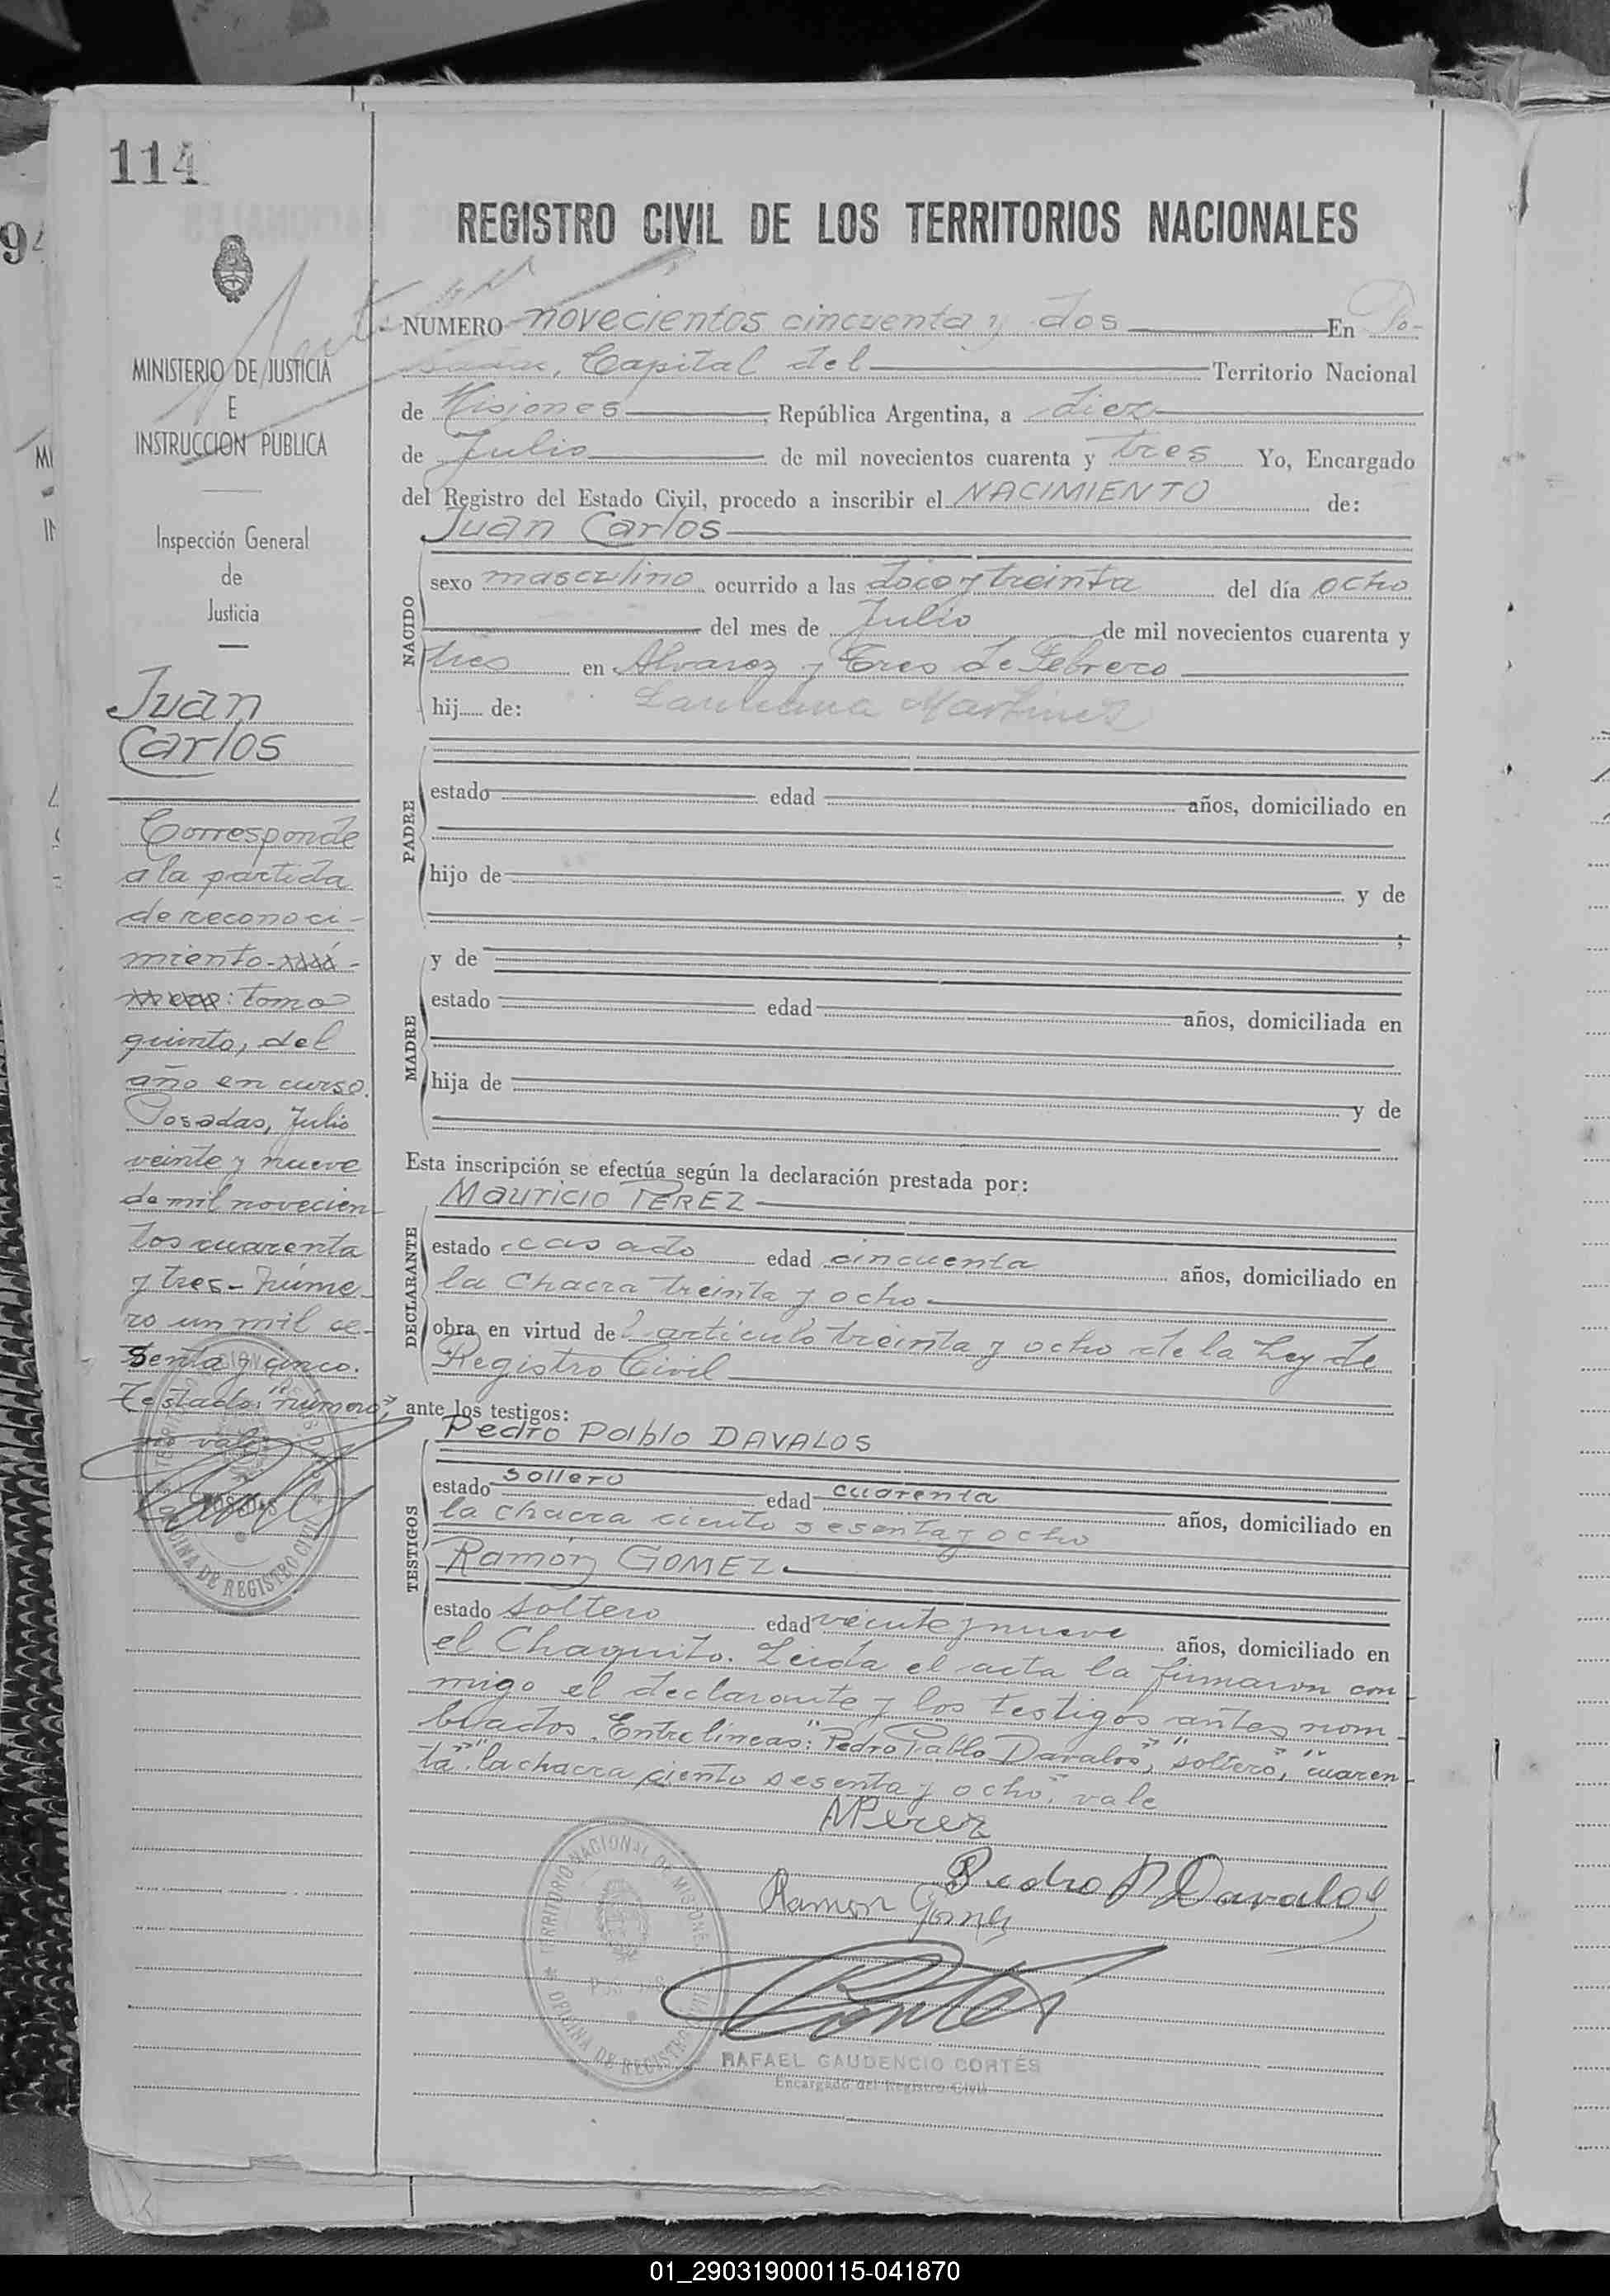 114
REGISTRO CIVIL DE LOS TERRITORIOS NACIONALES
MINISTERIO DE JUSTICIA
E
INSTRUCCION PUBLICA
Inspección General
de
Justicia
Juan
Carlos
Corresponde
a la partida
de reconoci-
miento-
: tomo
quinto, del
año en curso.
Posadas, Julio
veinte y nueve
de mil novecien
tos cuarenta
y tres - Núme-
ro un mil se-
senta y cinco.
Testado: "número",
no vale
NUMERO novecientos cincuenta y dos En Po-
sadas, Capital del Territorio Nacional
de Misiones, República Argentina, a diez
de Julio de mil novecientos cuarenta y tres Yo, Encargado
del Registro del Estado Civil, procedo a inscribir el NACIMIENTO de:
Juan Carlos
NACIDO
sexo masculino ocurrido a las doce y treinta del día ocho
del mes de Julio de mil novecientos cuarenta y
tres en Alvarez y Tres de Febrero
hij de: Martinez
PADRE
estado edad años, domiciliado en
hijo de y de
;
MADRE
y de
estado edad años, domiciliada en
hija de y de
Esta inscripción se efectúa según la declaración prestada por:
Mauricio PEREZ
DECLARANTE
estado casado edad cincuenta años, domiciliado en
la chacra treinta y ocho
obra en virtud del artículo treinta y ocho de la Ley de
Registro Civil
ante los testigos:
Pedro Pablo DAVALOS
TESTIGOS
estado soltero edad cuarenta años, domiciliado en
la chacra ciento sesenta y ocho
Ramón GOMEZ
estado soltero edad veinte y nueve años, domiciliado en
el Chaquito. Leida el acta la firmaron con
migo el declarante y los testigos antes nom-
brados. Entre líneas: "Pedro Pablo Davalos", "soltero", "cuaren-
ta" "la chacra ciento sesenta y ocho", vale
MPerez
Pedro P Davalos
Ramon Gomez
TERRITORIO NACIONAL DE MISIONES
OFICINA DE REGISTRO CIVIL
RAFAEL GAUDENCIO CORTÉS
Encargado del Registro Civil
01_290319000115-041870